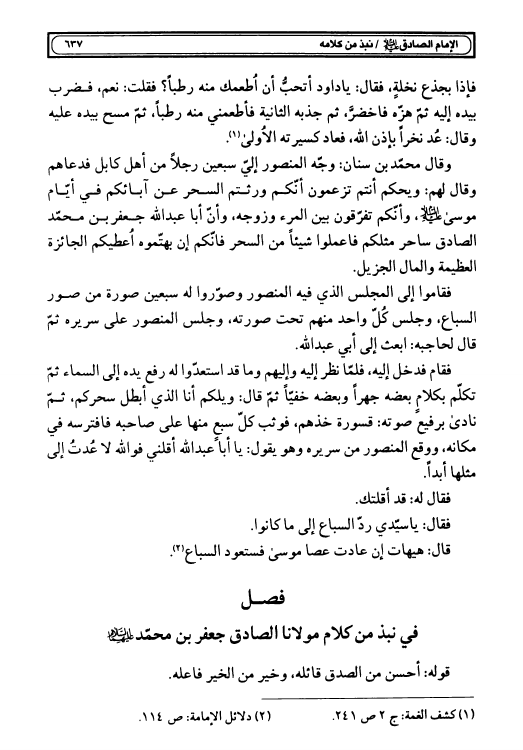 الإمام الصادق عليه السلام / نبذ من كلامه ٦٣٧
فإذا بجذع نخلةٍ، فقال: ياداود أتحبُّ أن اُطعمك منه رطباً؟ فقلت: نعم، فـضرب
بيده إليه ثمّ هزّه فاخضرَّ، ثم جذبه الثانية فأطعمني منه رطباً، ثمّ مسح بيده عليه
وقال: عُد نخراً بإذن الله، فعاد كسيرته الأولىٰ(١).
وقال محمّد بن سنان: وجّه المنصور إليّ سبعين رجلاً من أهل كابل فدعاهم
وقال لهم: ويحكم أنتم تزعمون أنّكـم ورثـتم السـحر عـن آبـائكم فـي أيّـام
موسىٰ عليه السلام، وأنّكم تفرّقون بين المرء وزوجه، وأنّ أبا عبدالله جـعفر بـن مـحمّد
الصادق ساحر مثلكم فاعملوا شيئاً من السحر فانّكم إن بهتّموه اُعطيكم الجائزة
العظيمة والمال الجزيل.
فقاموا إلى المجلس الذي فيه المنصور وصوّروا له سبعين صورة من صـور
السباع، وجلس كُلّ واحد منهم تحت صورته، وجلس المنصور على سريره ثمّ
قال لحاجبه: ابعث إلى أبي عبدالله.
فقام فدخل إليه، فلمّا نظر إليه وإليهم وما قد استعدّوا له رفع يده إلى السماء ثمّ
تكلّم بكلامٍ بعضه جهراً وبعضه خفيّاً ثمّ قال: ويلكم أنا الذي أبطل سحركم، ثـمّ
نادىٰ برفيع صوته: قسورة خذهم، فوثب كلّ سبعٍ منها على صاحبه فافترسه في
مكانه، ووقع المنصور من سريره وهو يقول: يا أبا عبدالله أقلني فوالله لا عُدتُ إلى
مثلها أبداً.
فقال له: قد أقلتك.
فقال: ياسيّدي ردّ السباع إلى ما كانوا.
قال: هيهات إن عادت عصا موسىٰ فستعود السباع(٢).
فصـل
في نبذ من كلام مولانا الصادق جعفر بن محمّد عليهما السلام
قوله: أحسن من الصدق قائله، وخير من الخير فاعله.
(١) كشف الغمة: ج ٢ ص ٢٤١. (٢) دلائل الإمامة: ص ١١٤.